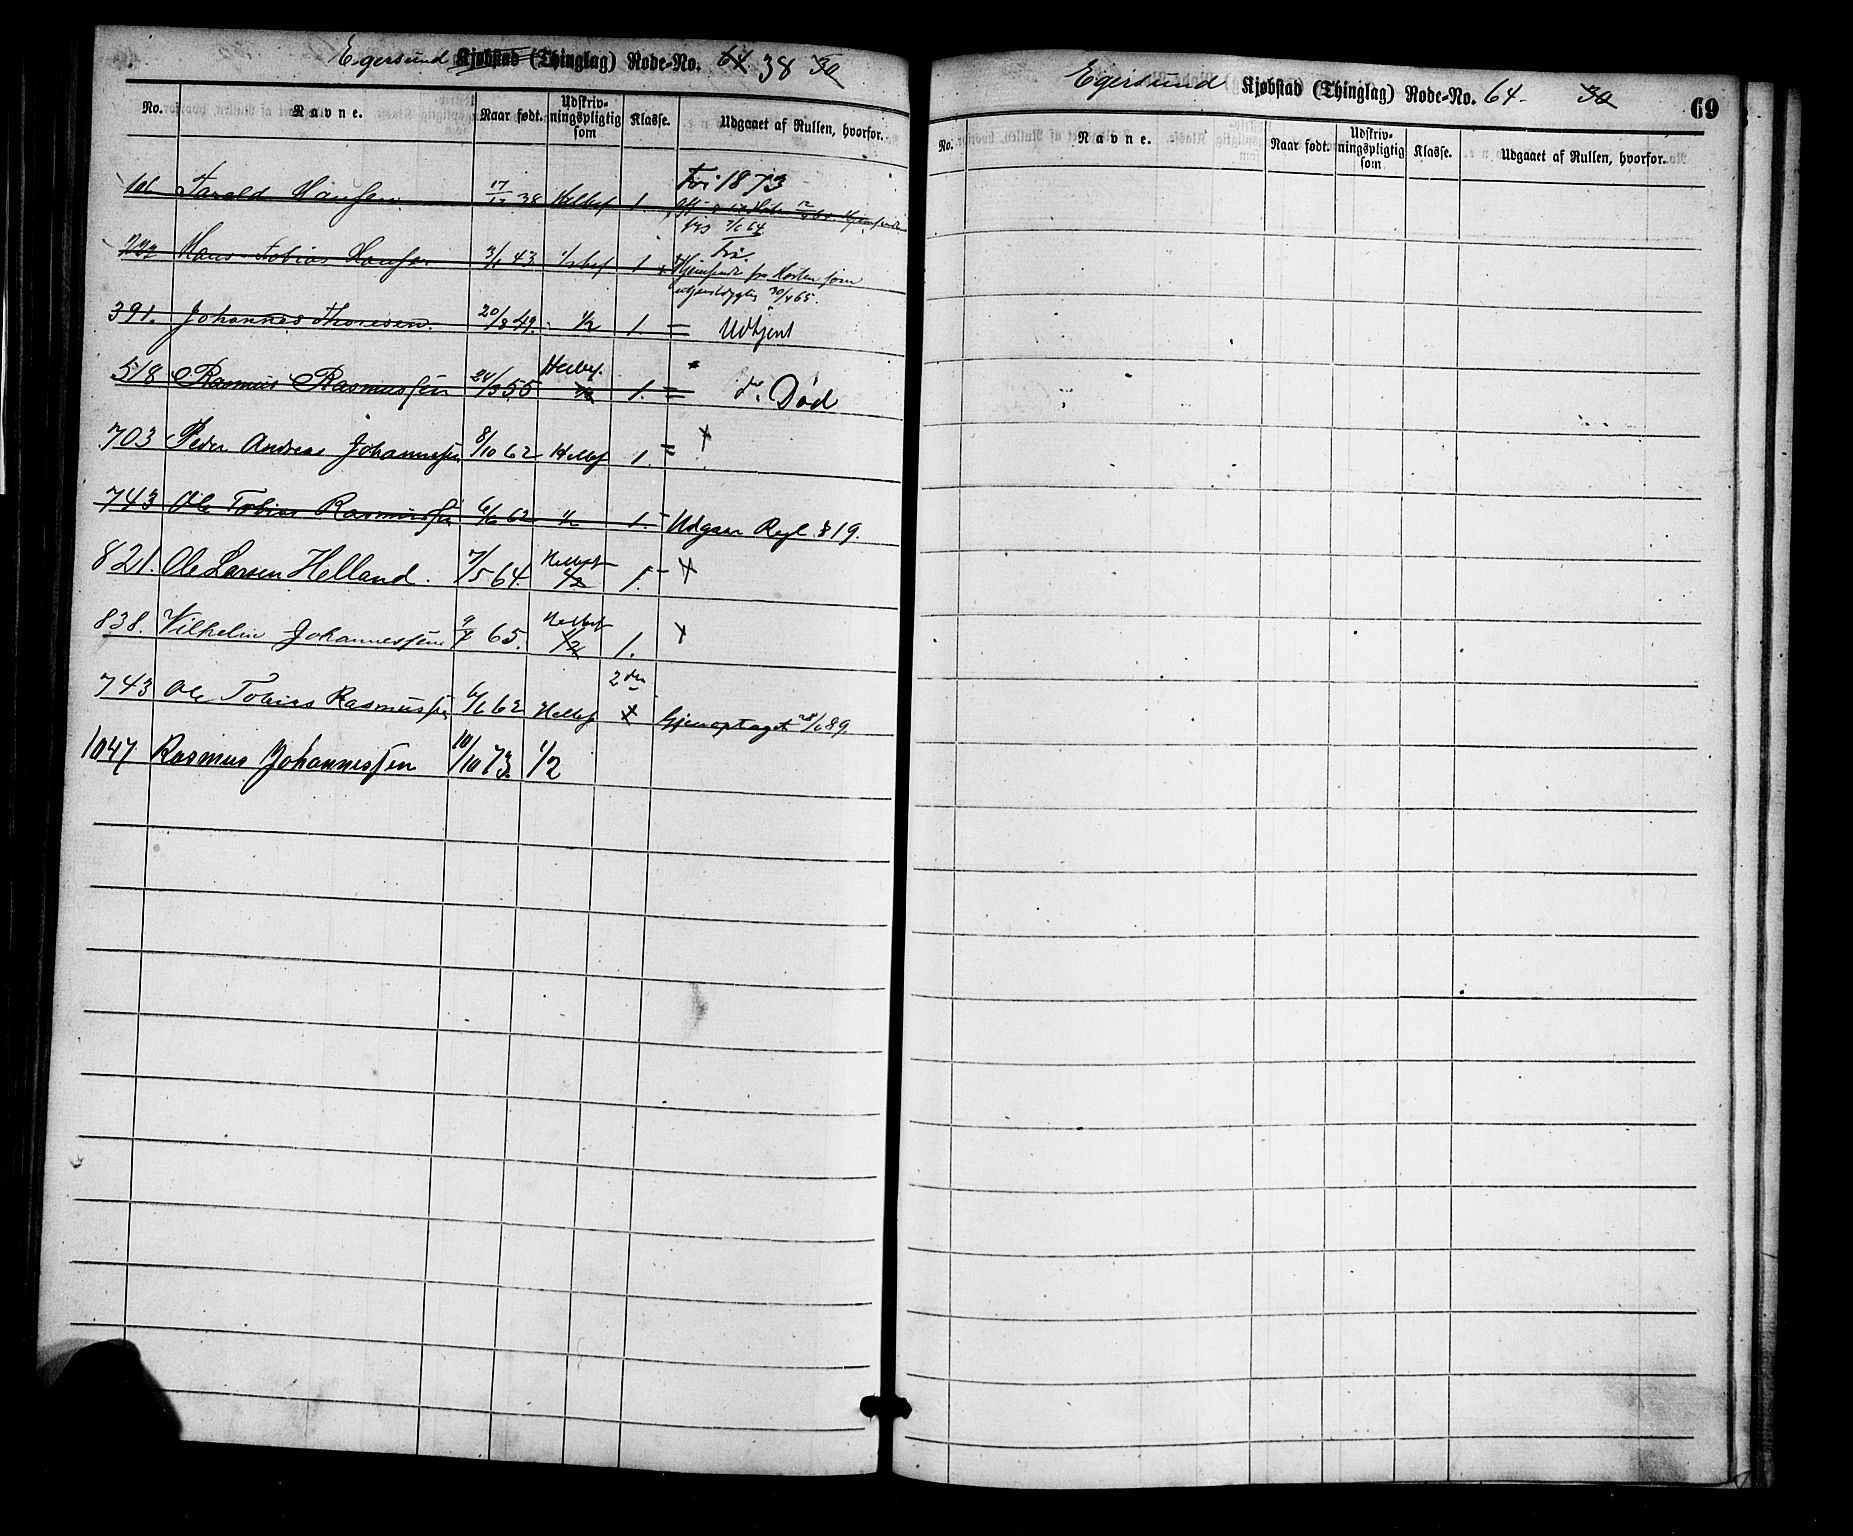 Egersund Kjøbstad (Thinglag) Rode-No. 64 38 30
No. Navne. Naar født. Udskriv-ningspligtig som Klasse. Udgaaet af Rullen, hvorfor.
Fri 1873
101 Tarald Hansen 17/12 38 Helbef 1.
7/6 64
Fri.
Hans Tobias Hansen 3/1 43 1/2bef 1 Hjemsendt fra Horten som
udygtig 30/4 65.
391. Johannes Thoresen. 20/8 49. 1/2 1. = Udtjent
518 Rasmus Rasmussen 24/3 55 Helbef. 1/2 1. = do. Død
703 Peder Andreas Johannessen 8/10 62 Helbef 1. = +
743 Ole Tobias Rasmussen 6/6 62 1/2 1. Udgaar Regl. § 19.
821. Ole Larsen Helland. 7/5 64. Helbef 1/2 1. +
838. Vilhelm Johannessen 9/4 65. Helbef 1/2 1. +
2den
743 Ole Tobias Rasmussen 6/6 62 Helbef + Gjenoptaget 28/6 89.
1047 Rasmus Johannessen 10/10 73. 1/2
Egersund Kjøbstad (Thinglag) Rode-No. 64. 30
69
No. Navne. Naar født. Udskriv-ningspligtig som Klasse. Udgaaet af Rullen, hvorfor.